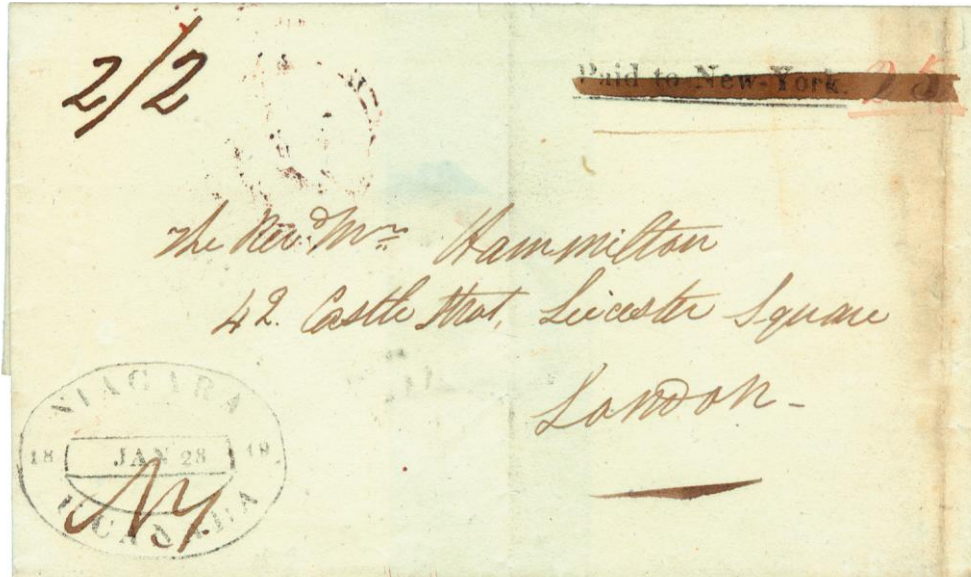 2/2
Paid to New-York. 25
The Revd. Mr. Hammilton
42. Castle Street, Leicester Square
London-
NIAGARA
18 JAN 28 19
U CANADA
NY